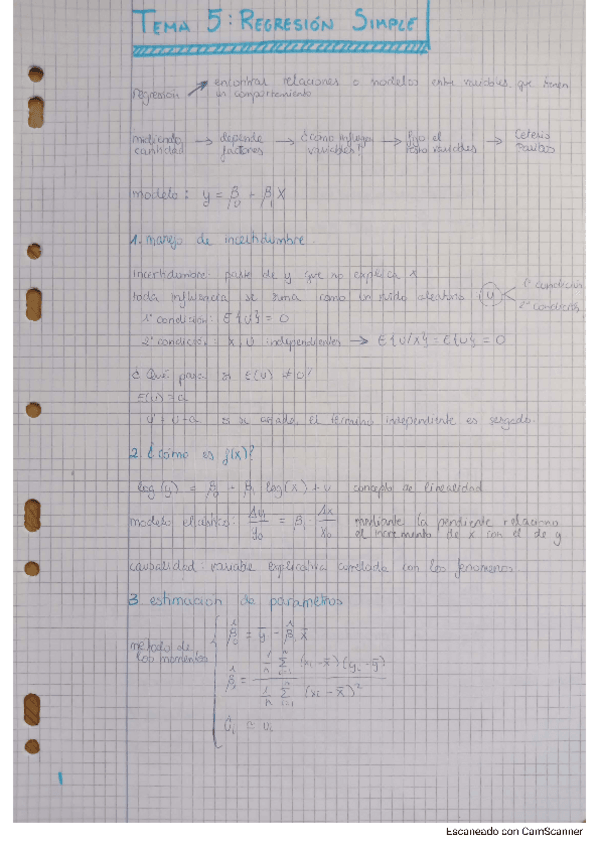 TEMA 5: REGRESIÓN SIMPLE
regresión → encontrar relaciones o modelos entre variables que tienen
un comportamiento
cantidad → depende factores → ¿cómo influyen variables? → fijo el resto variables → Ceteris Paribus
modelo: y = β₀ + β₁ X
1. manejo de incertidumbre
Incertidumbre: parte de y que no explica x
toda influencia se suma como un ruido aleatorio (u) 1ª condición
2ª condición
1ª condición: E{U} = 0
2ª condición: X, U independientes → E{U/X} = E{U} = 0
¿Qué pasa si E(U) ≠ 0?
E(U) = a
= si añado, el término independiente es sesgado.
2. ¿Cómo es f(x)?
log(y) = β₀ + β₁ log(x) + u concepto de linealidad
modelo elástico: Δy/y₀ = β₁ Δx/x₀ mediante la pendiente relaciono
el incremento de x con el de y
causalidad: variable explicativa correlada con los fenomenos
3. estimacion de parámetros
método de
los momentos
β̂₀ = ȳ - β̂₁ x̄
β̂₁ = 1/n Σⁿᵢ₌₁ (xᵢ - x̄)(yᵢ - ȳ) / 1/n Σⁿᵢ₌₁ (xᵢ - x̄)²
Ûᵢ ≃ uᵢ
1
Escaneado con CamScanner